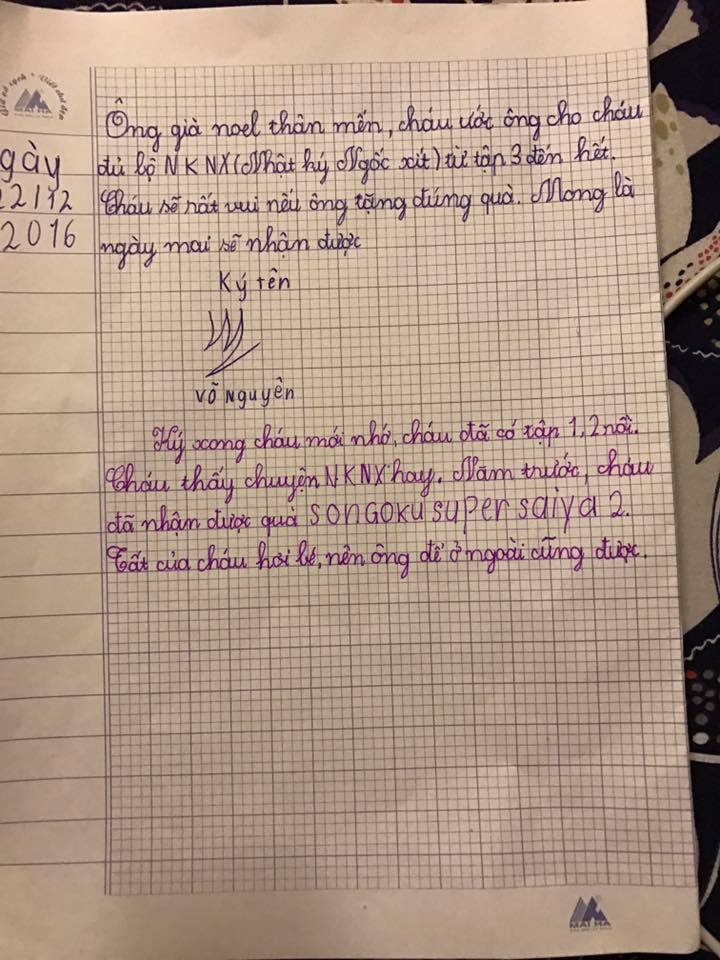 gày
22112
2016
Ông già noel thân mến, cháu ước ông cho cháu
đủ bộ NKNX(Nhật ký Ngốc xít) từ tập 3 đến hết.
Cháu sẽ rất vui nếu ông tặng đúng quà. Mong là
ngày mai sẽ nhận được
Ký tên
Võ Nguyên
Ký xong cháu mới nhớ, cháu đã có tập 1,2 rồi.
Cháu thấy chuyện NKNX hay. Năm trước, cháu
đã nhận được quà SONGOKU super saiya 2.
Tất của cháu hơi bé, nên ông để ở ngoài cũng được.
MAI HA